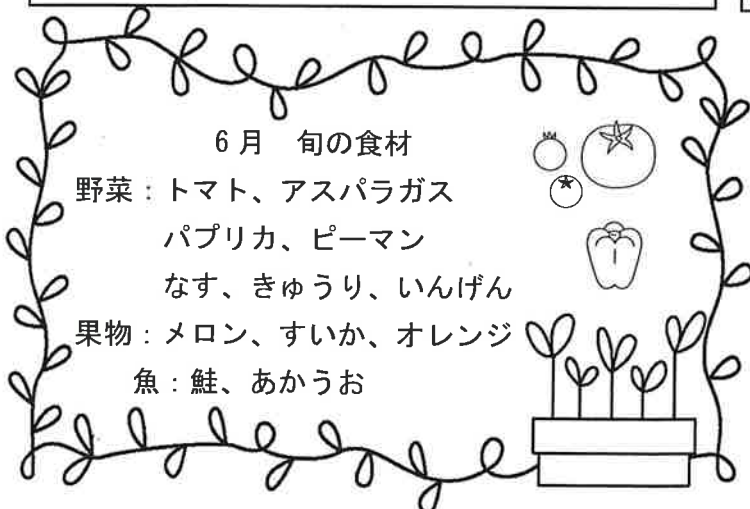 6月　旬の食材
野菜：トマト、アスパラガス
パプリカ、ピーマン
なす、きゅうり、いんげん
果物：メロン、すいか、オレンジ
魚：鮭、あかうお